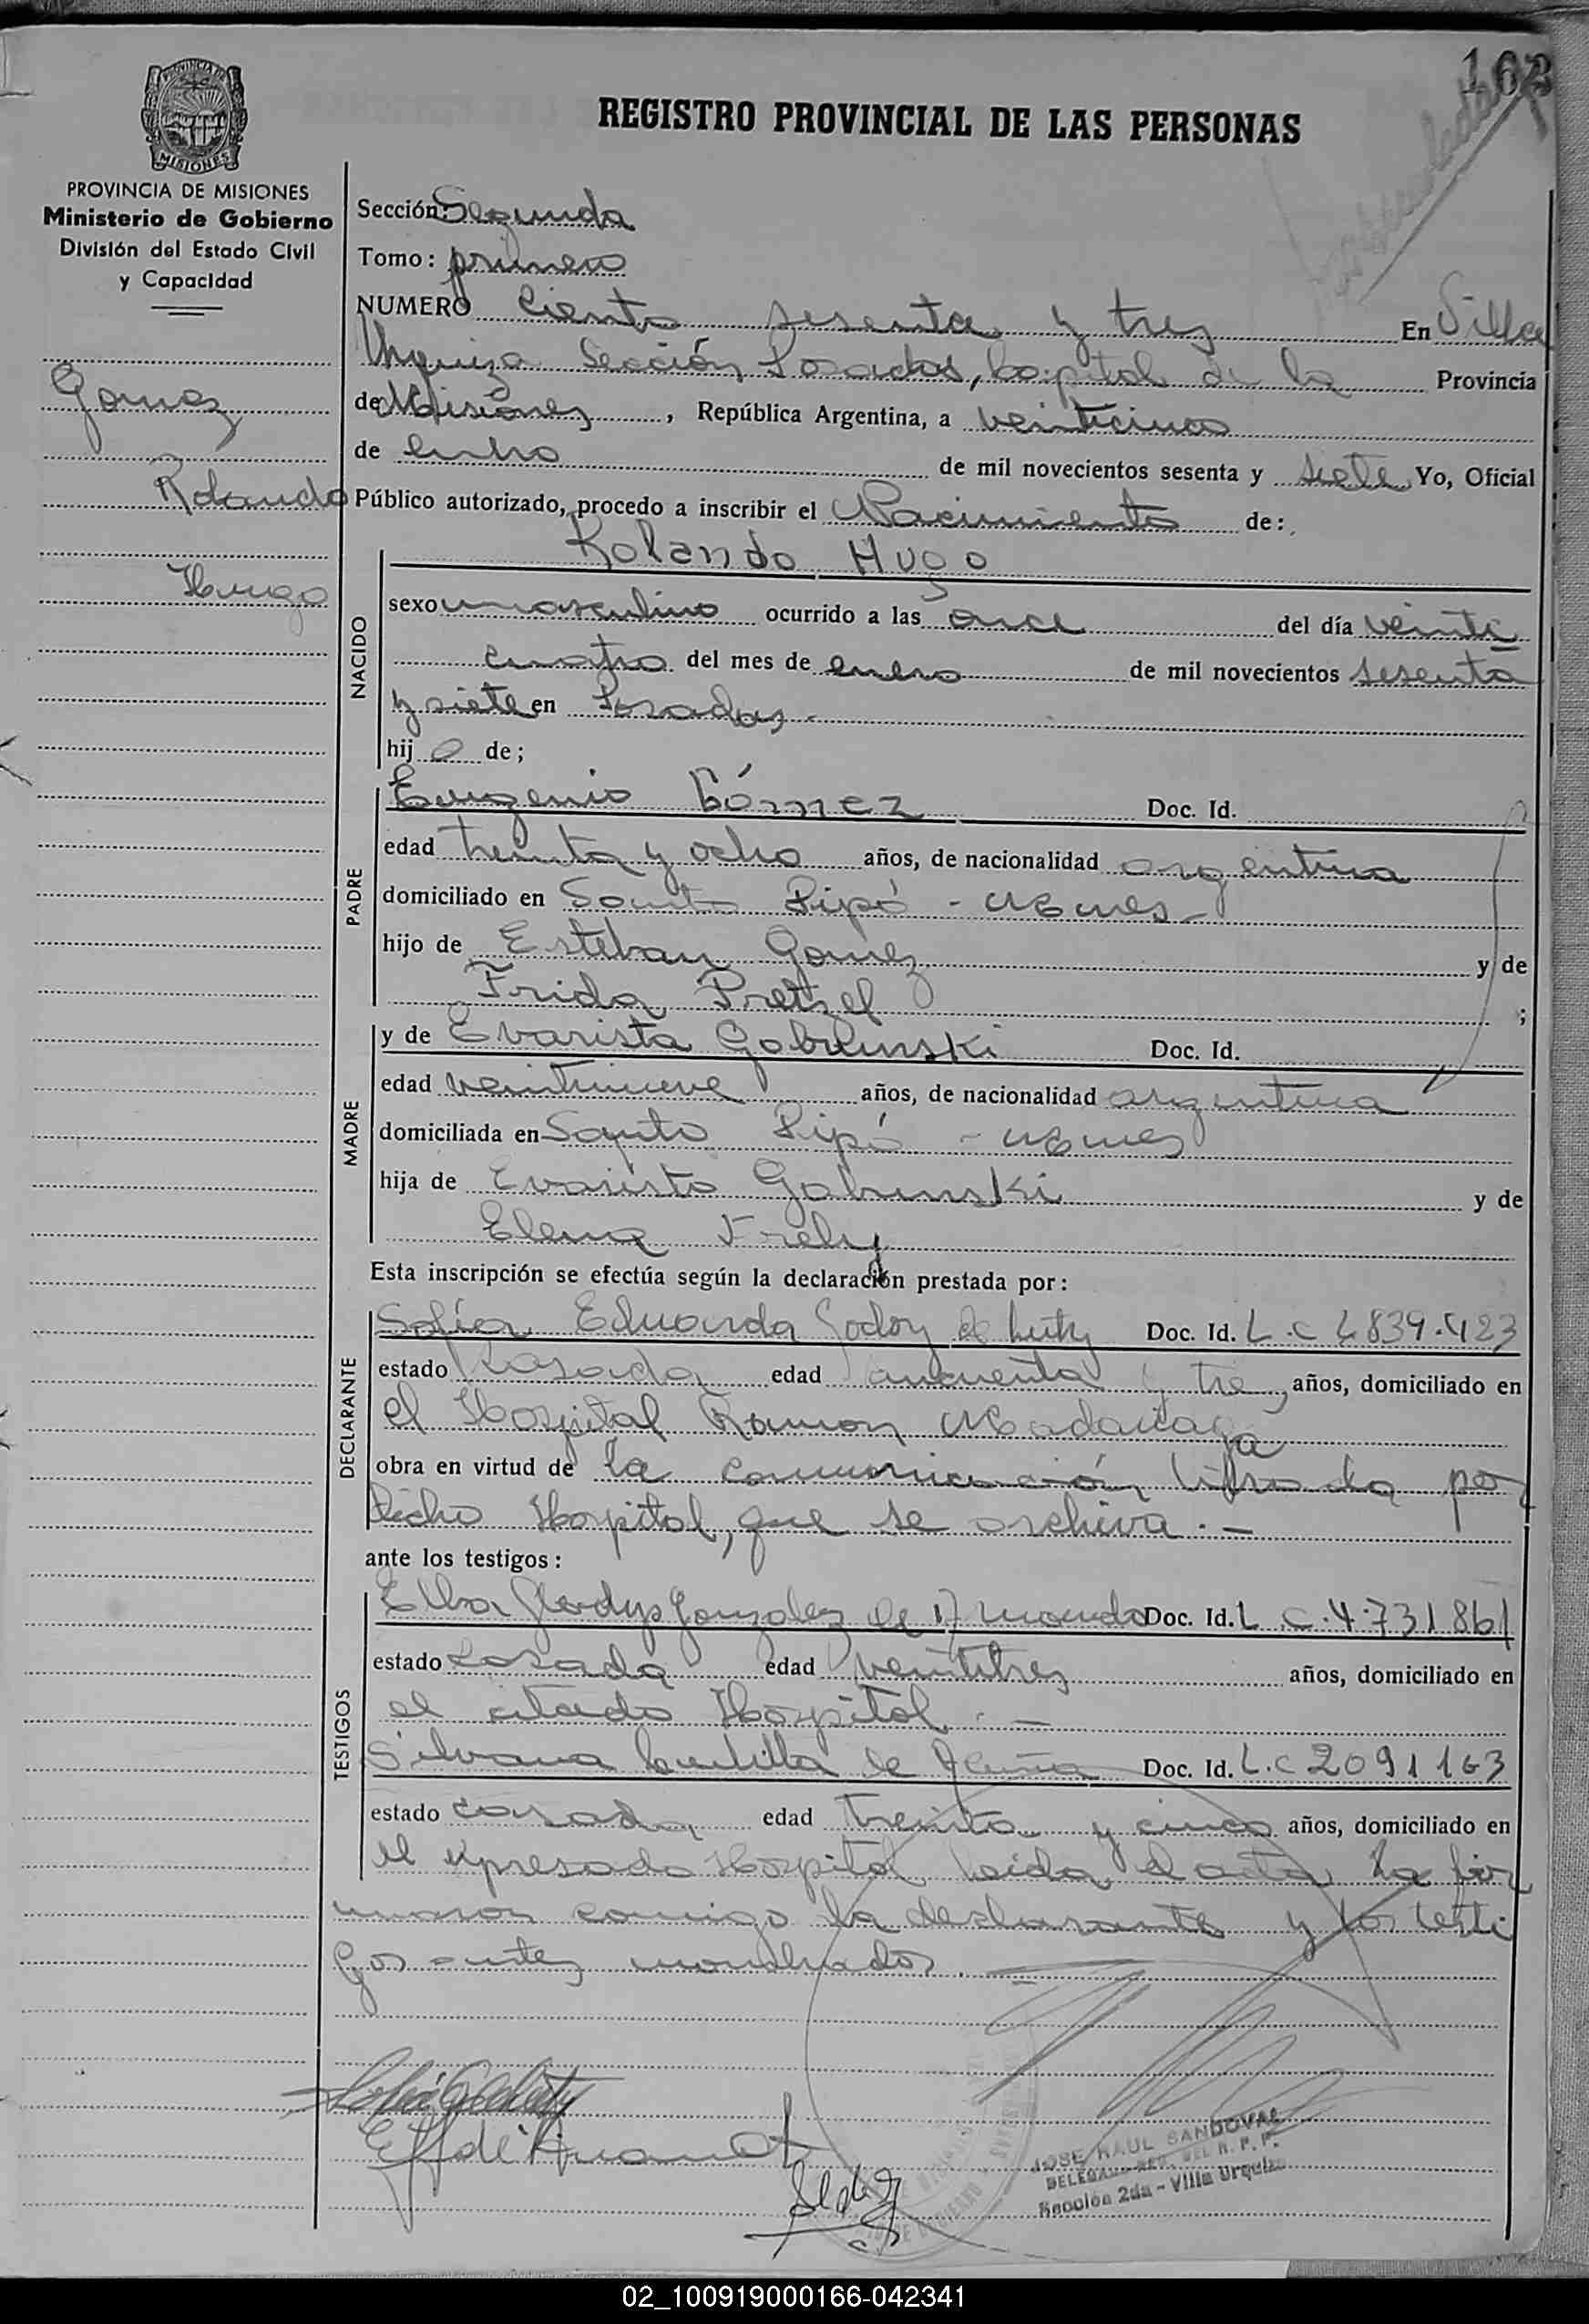 163
PROVINCIA DE MISIONES
REGISTRO PROVINCIAL DE LAS PERSONAS
PROVINCIA DE MISIONES
Ministerio de Gobierno
División del Estado Civil
y Capacidad
Gomez
Rolando
Hugo
Sección: Segunda
Tomo: primero
NUMERO Ciento sesenta y tres En Villa
Urquiza Sección Posadas, Capital de la Provincia
de Misiones, República Argentina, a veinticinco
de enero de mil novecientos sesenta y siete Yo, Oficial
Público autorizado, procedo a inscribir el Nacimiento de:
Rolando Hugo
NACIDO
sexo masculino ocurrido a las once del día veinti
cuatro del mes de enero de mil novecientos sesenta
y siete en Posadas.-
hij o de;
PADRE
Eugenio Gómez Doc. Id.
edad treinta y ocho años, de nacionalidad argentina
domiciliado en Santo Pipó - Mnes -
hijo de Esteban Gomez y de
Frida Pretzel ;
MADRE
y de Evarista Gabrunski Doc. Id.
edad veintinueve años, de nacionalidad argentina
domiciliada en Santo Pipó - Mnes
hija de Evaristo Gabrunski y de
Elena
Esta inscripción se efectúa según la declaración prestada por:
DECLARANTE
Sofía Eduarda Godoy de Doc. Id. L.C 2839.423
estado Casada edad cincuenta y tres años, domiciliado en
el Hospital Ramon Madariaga
obra en virtud de la comunicación librada por
dicho Hospital, que se archiva.-
ante los testigos:
TESTIGOS
Elba Gladys Gonzalez de Doc. Id. L.C.4.731861
estado casada edad veintitres años, domiciliado en
el citado Hospital.-
Silvana de Acuña Doc. Id. L.C 2091163
estado casada edad treinta y cinco años, domiciliado en
el expresado Hospital leida el acta la fir
maron conmigo la declarante y los testi
gos antes nombrados.-
JOSE RAUL SANDOVAL
DELEGADO REG. DEL R. P. P.
Sección 2da - Villa Urquiza
02_100919000166-042341